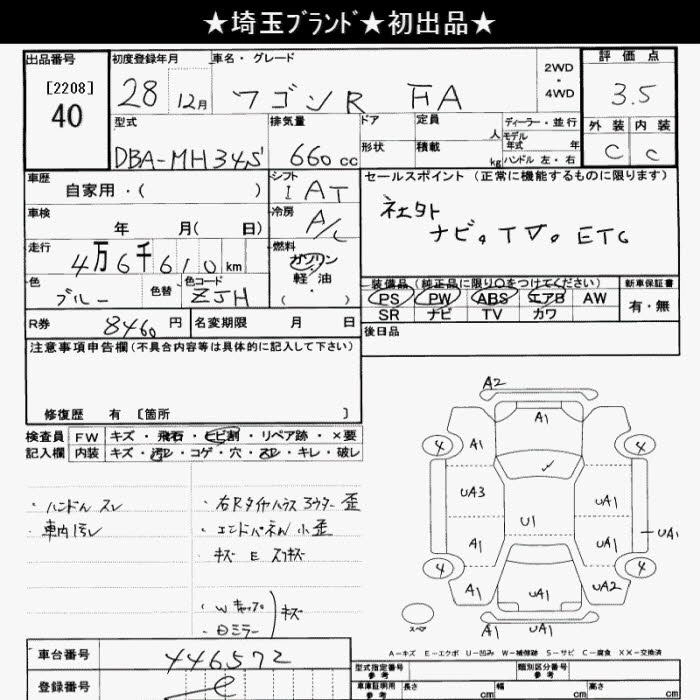 ★埼玉ﾌﾞﾗﾝﾄﾞ★初出品★
出品番号 初度登録年月 車名・グレード 2WD・4WD 評価点
[2208]
40
28 12月 ワゴンR FA 3.5
型式 排気量 ドア 定員 人 ディーラー・並行 外装 内装
モデル年式 年
DBA-MH34S 660 cc 形状 積載 kg ハンドル 左・右 C C
車歴 自家用・( ) シフト セールスポイント (正常に機能するものに限ります)
IAT
車検 年 月( 日) 冷房 A/C
ナビ。TV。ETC
走行 4万6千610km 燃料 ガソリン 軽・油 ( ・ )
色 ブルー 色替 色コード ZJH
装備品 (純正品に限り○をつけてください) 新車保証書
PS PW ABS エアB AW 有・無
SR ナビ TV カワ
R券 8460円 名変期限 月 日 後日品
注意事項申告欄(不具合内容等は具体的に記入して下さい)
修復歴 有 [箇所 ]
検査員 FW キズ・飛石・ヒビ割・リペア跡・×要
記入欄 内装 キズ・汚レ・コゲ・穴・スレ・キレ・破レ
・ハンドル スレ
・車内汚レ
・右Rタイヤハウス アウター 歪
・エンドパネル 小歪
・キズ E スリキズ
・Wキャップ
・Dミラー
キズ
A2
A1
4 A1 4
UA3 UA1
U1 UA1
A1 UA1
4 4
A1 UA1 UA2
スペア A1 UA1
A-キズ E-エクボ U-凹み W-補修跡 S-サビ C-腐食 XX-交換済
車台番号 446572
登録番号
型式指定番号 参考 類別区分番号 参考
車庫証明用 参考 長さ cm 幅 cm 高さ cm